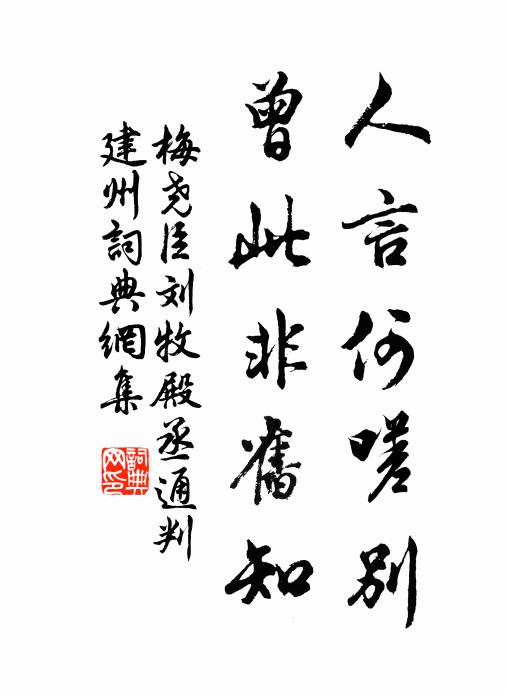 人言何嗟别
曾此非舊知
梅尧臣刘牧殿丞通判
建州詞典網集
詞典网印